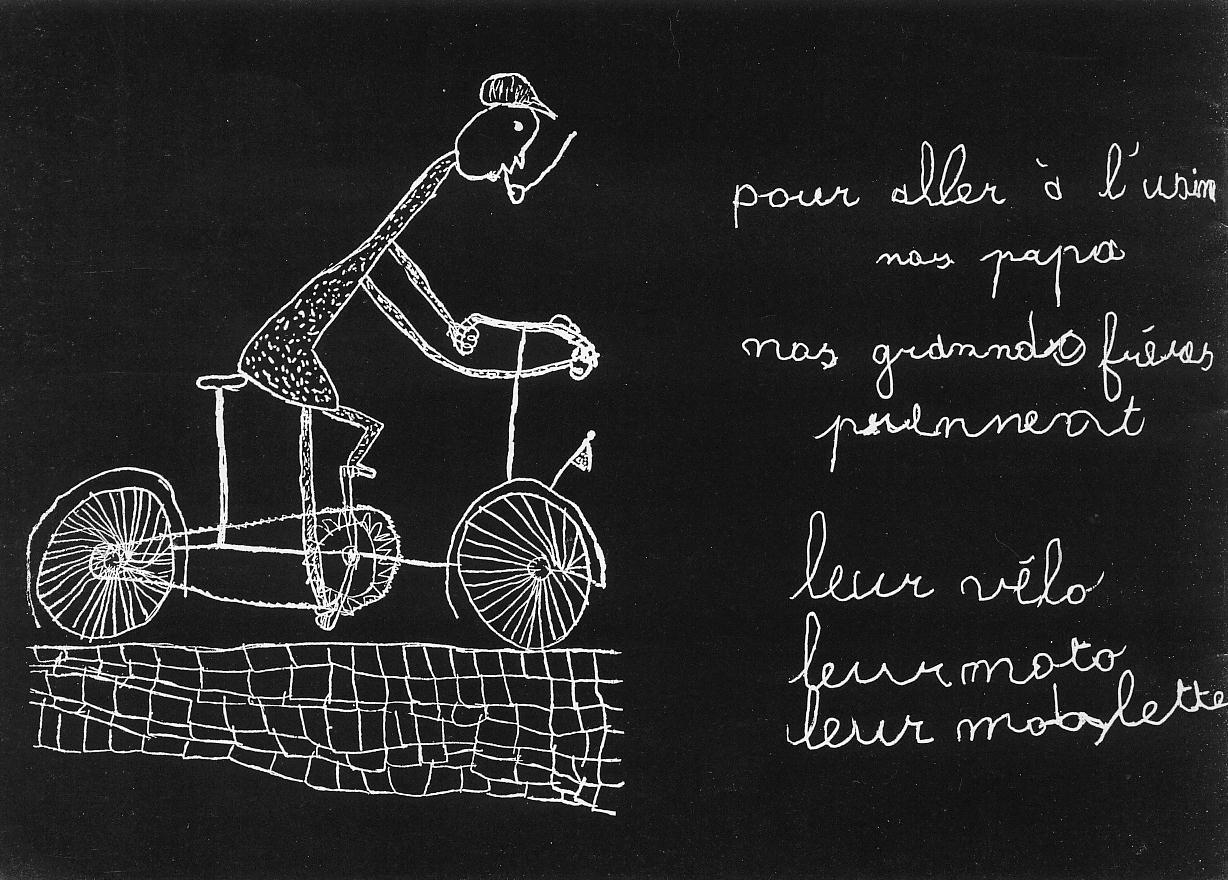 pour aller à l'usin
nos papa
nos grannds fréres
prennent
leur vélo
leur moto
leur mobylette